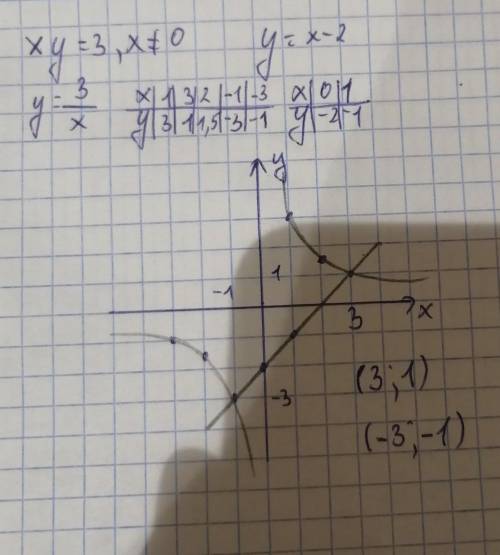 xy = 3, x ≠ 0
y = x - 2
y = 3/x
x | 1 | 3 | 2 | -1 | -3
y | 3 | 1 | 1,5 | -3 | -1
x | 0 | 1
y | -2 | -1
y
-1
1
3
x
-3
(3; 1)
(-3; -1)